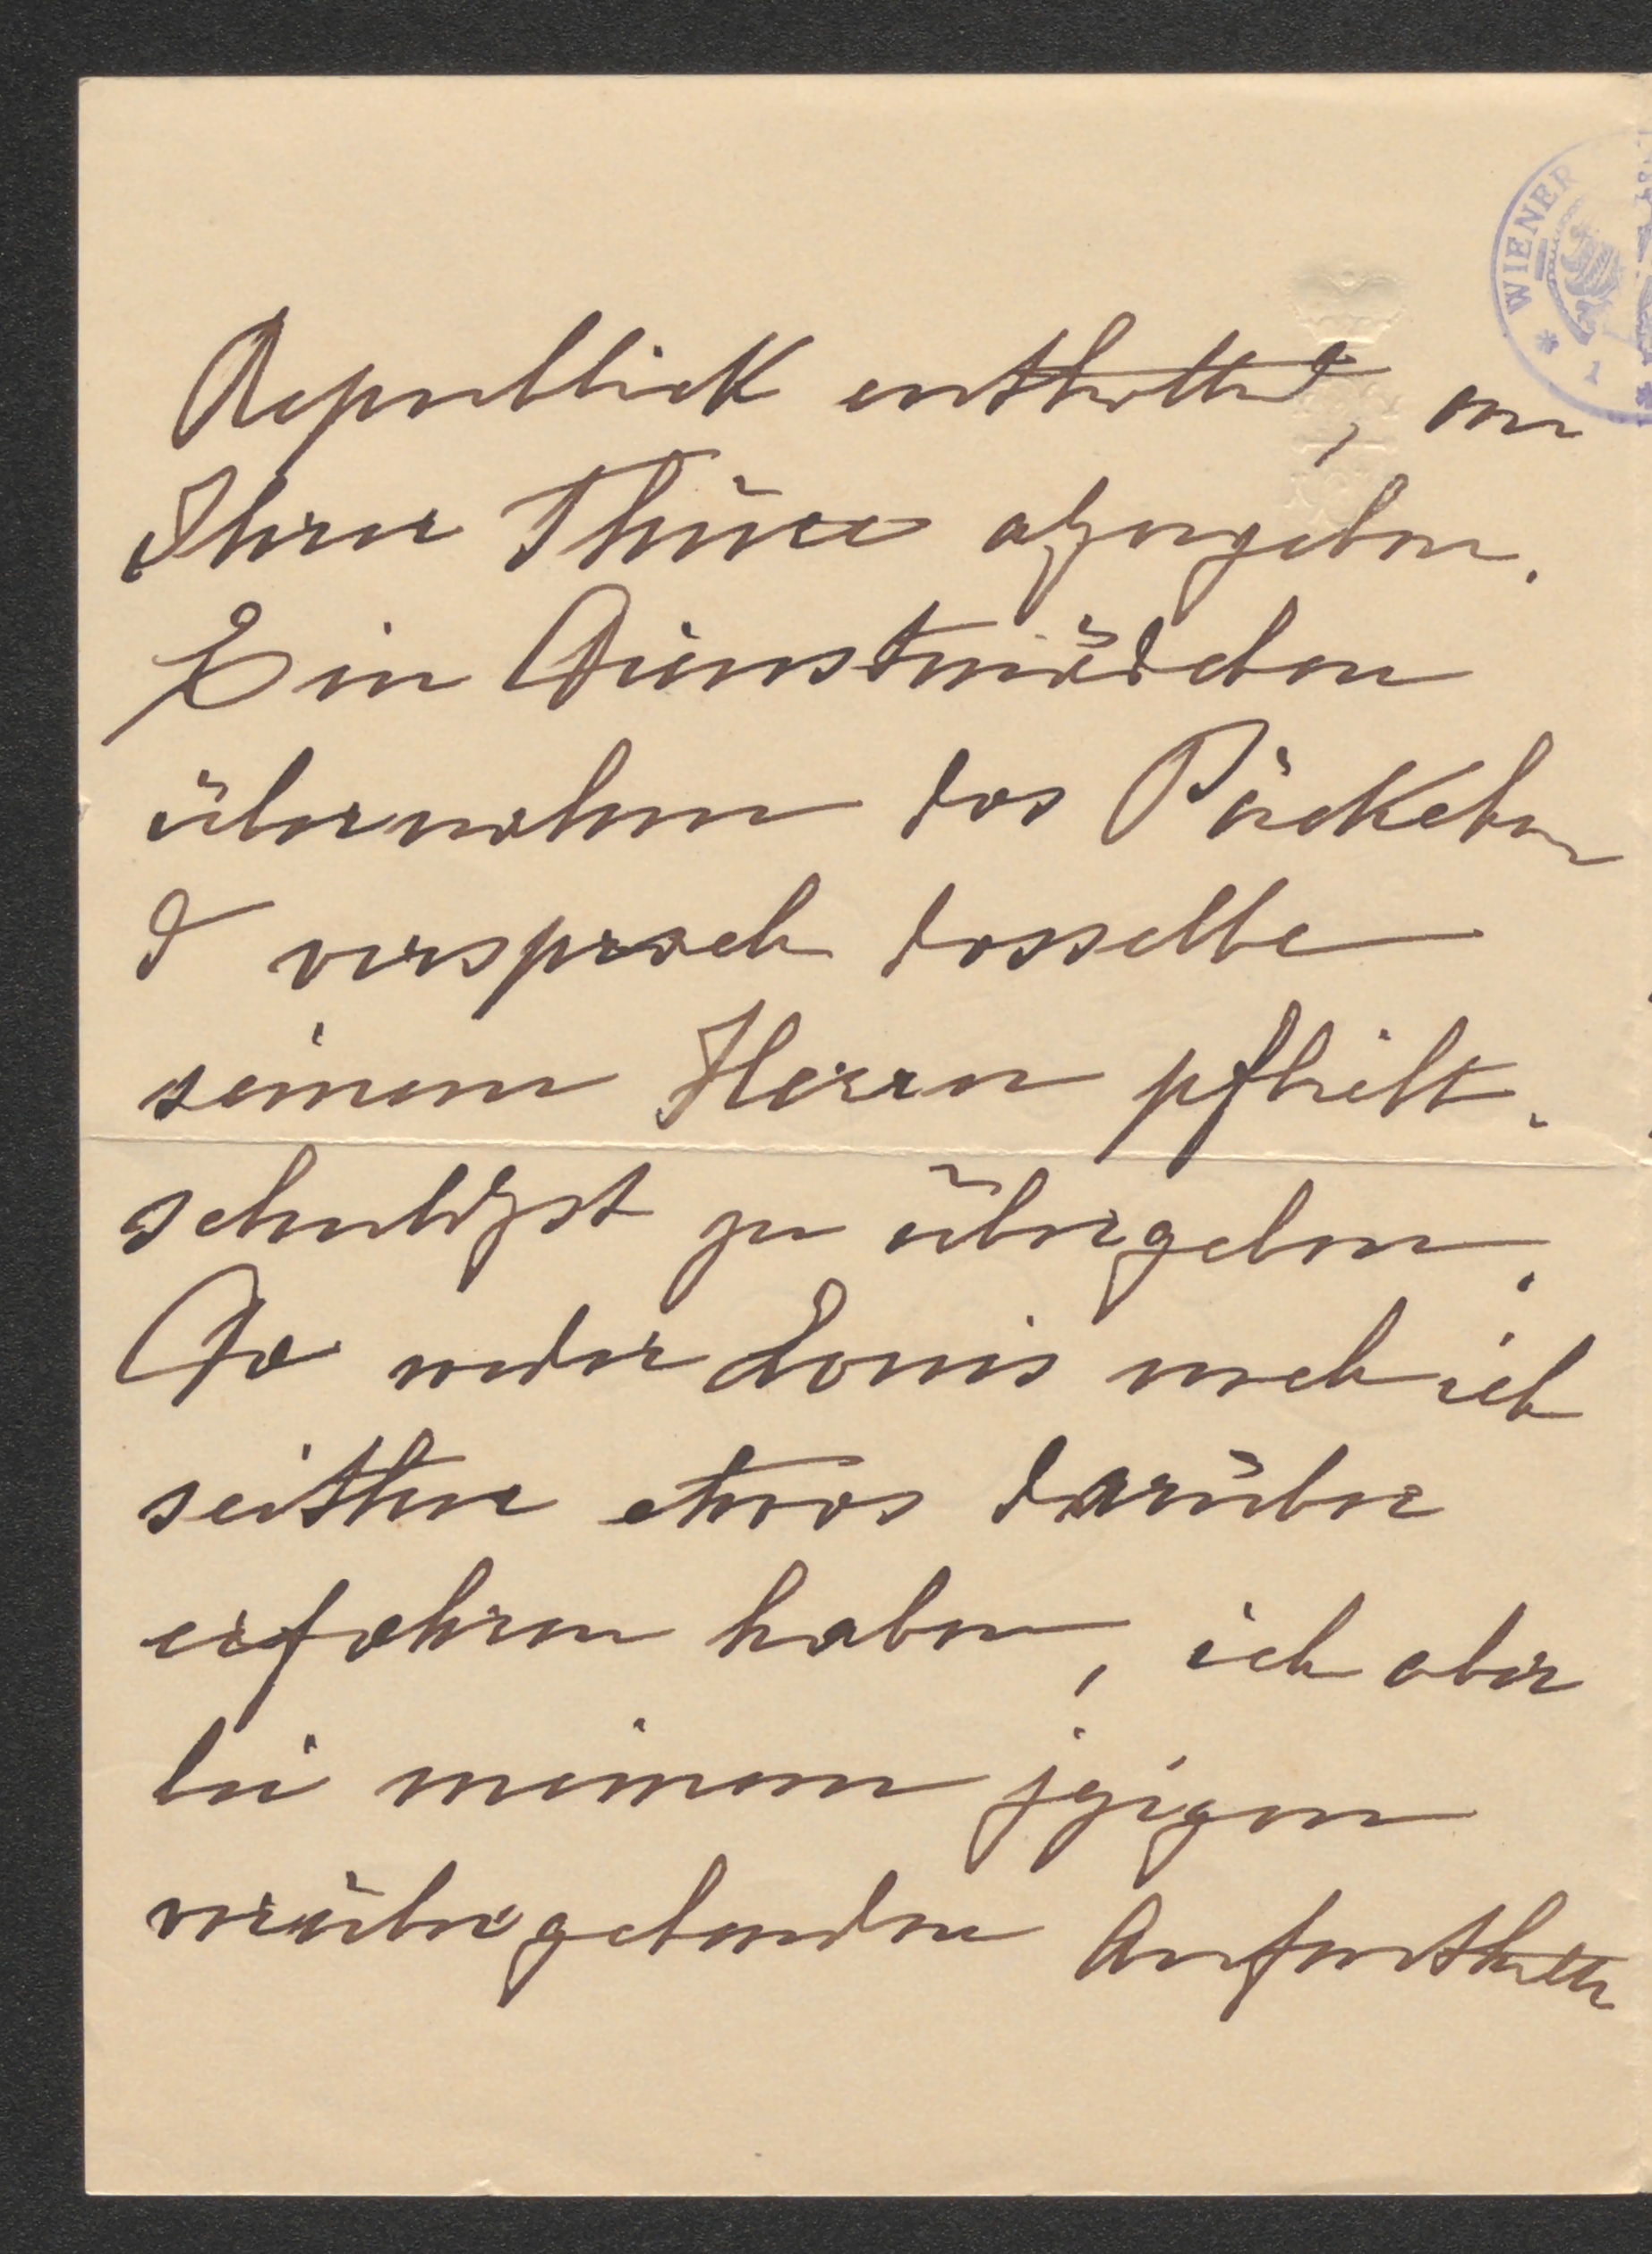 WIENER
Republick enthaltend, an
Ihrer Thüre abzugeben.
Ein Dienstmädchen
übernahm das Päckchen
& versprach dasselbe
seinem Herrn pflicht-
schuldigst zu übergeben.
Da weder Louis noch ich
seither etwas darüber
erfahren haben, ich aber
bei meinem jetzigen
vorübergehenden Aufenthalte